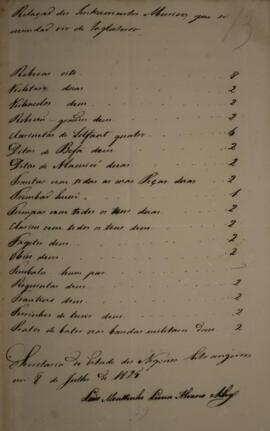 Relação dos Instrumentos Musicos que se
mandão vir de Inglaterra
Rebecas oito 8
Violetas duas 2
Violoncelos dous 2
Rebecão grandes dous 2
Clarinetas de Elafant quatro 4
Ditas de Befá duas 2
Ditas de Alamiré duas 2
Flautas com todas as suas Peças duas 2
Trombão hum 1
Trompas com todos os tons duas 2
Clarins com todos os tons dous 2
Fagotes dous 2
Oboés dous 2
Timbales hum par
Requintas duas 2
Flautins dous 2
dous 2
Pratos de bater nas bandas militares dous 2
Secretaria de Estado dos Negocios Estrangeiros
em 8 de Julho de
Luis Moutinho Lima Alvares e Silva